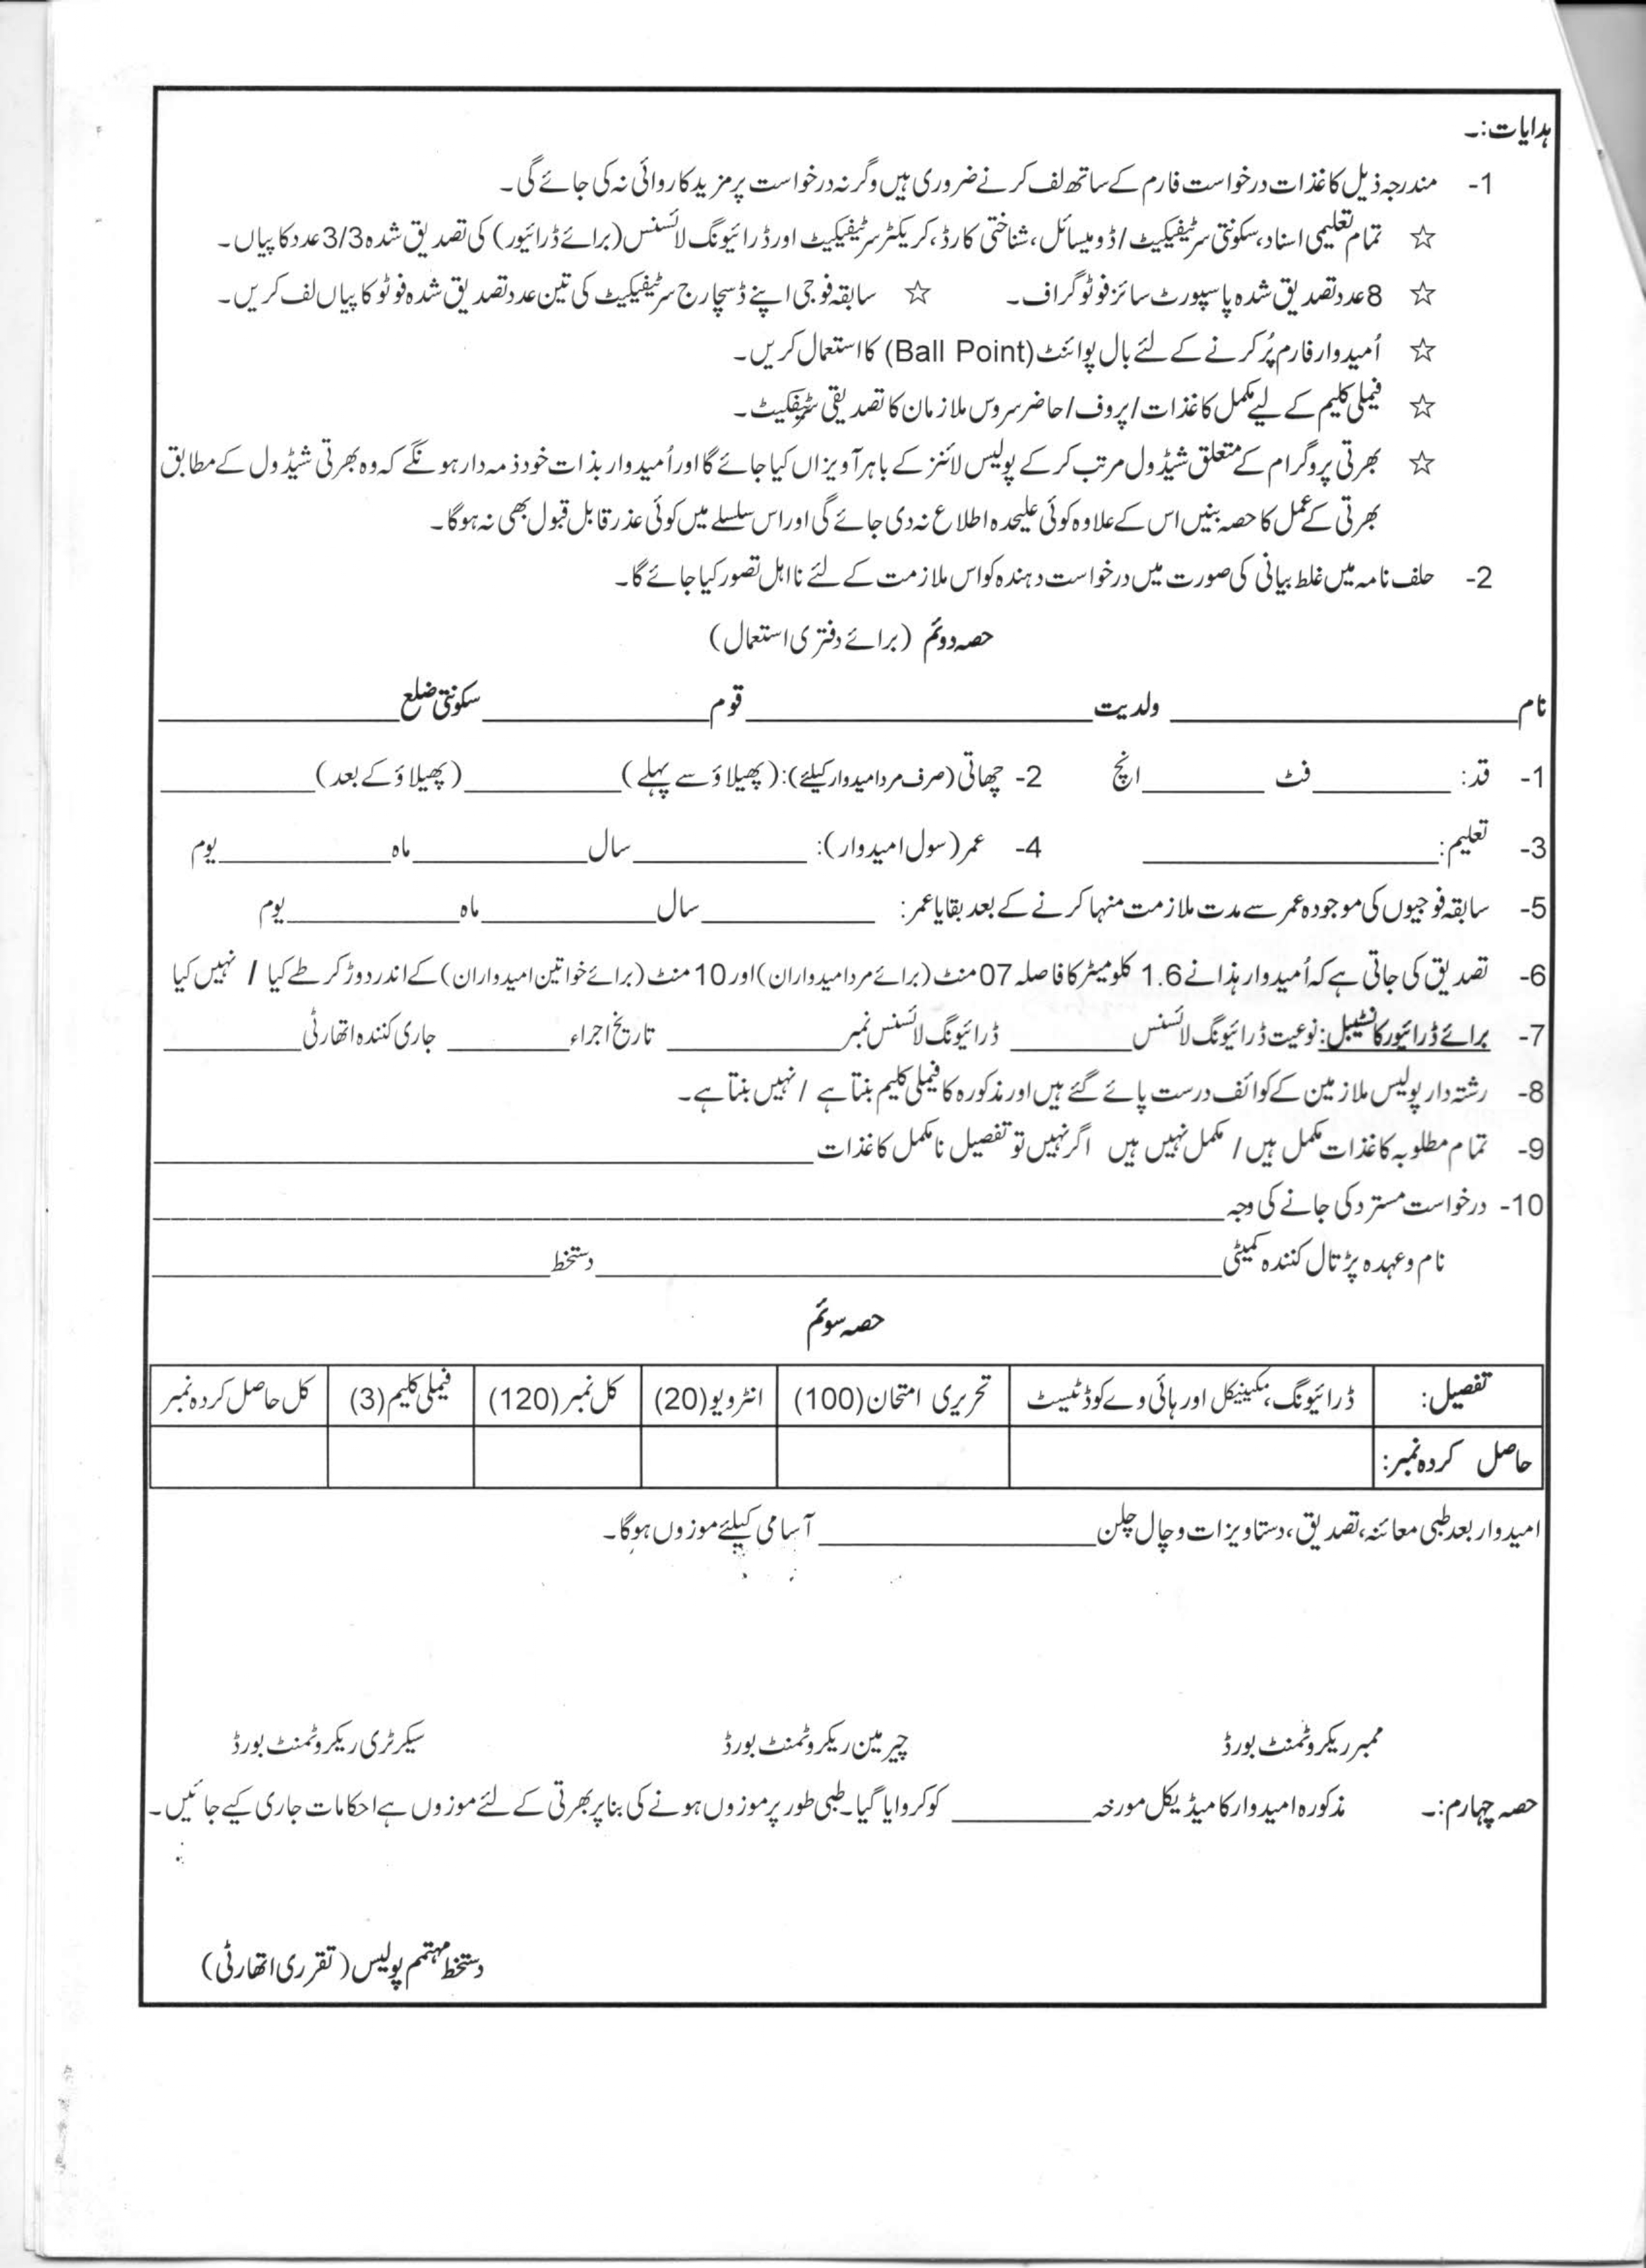 ہدایات:۔
1- مندرجہ ذیل کاغذات درخواست فارم کے ساتھ لف کرنے ضروری ہیں وگرنہ درخواست پر مزید کاروائی نہ کی جائے گی۔
☆ تمام تعلیمی اسناد، سکونتی سرٹیفیکیٹ/ڈومیسائل، شناختی کارڈ، کریکٹر سرٹیفیکیٹ اور ڈرائیونگ لائسنس (برائے ڈرائیور) کی تصدیق شدہ 3/3 عدد کاپیاں۔
☆ 8 عدد تصدیق شدہ پاسپورٹ سائز فوٹو گراف۔ ☆ سابقہ فوجی اپنے ڈسچارج سرٹیفیکیٹ کی تین عدد تصدیق شدہ فوٹو کاپیاں لف کریں۔
☆ اُمیدوار فارم پُر کرنے کے لئے بال پوائنٹ (Ball Point) کا استعمال کریں۔
☆ فیملی کلیم کے لیے مکمل کاغذات/پروف/حاضر سروس ملازمان کا تصدیقی سرٹیفکیٹ۔
☆ بھرتی پروگرام کے متعلق شیڈول مرتب کر کے پولیس لائنز کے باہر آویزاں کیا جائے گا اور اُمیدوار بذات خود ذمہ دار ہونگے کہ وہ بھرتی شیڈول کے مطابق
بھرتی کے عمل کا حصہ بنیں اس کے علاوہ کوئی علیحدہ اطلاع نہ دی جائے گی اور اس سلسلے میں کوئی عذر قابل قبول بھی نہ ہوگا۔
2- حلف نامہ میں غلط بیانی کی صورت میں درخواست دہندہ کو اس ملازمت کے لئے نااہل تصور کیا جائے گا۔
حصہ دوئم (برائے دفتری استعمال)
نام ________ ولدیت ________ قوم ________ سکونتی ضلع ________
1- قد: ________ فٹ ________ انچ 2- چھاتی (صرف مرد امیدوار کیلئے): (پھیلاؤ سے پہلے) ________ (پھیلاؤ کے بعد) ________
3- تعلیم: ________ 4- عمر (سول امیدوار): ________ سال ________ ماہ ________ یوم
5- سابقہ فوجیوں کی موجودہ عمر سے مدت ملازمت منہا کرنے کے بعد بقایا عمر: ________ سال ________ ماہ ________ یوم
6- تصدیق کی جاتی ہے کہ اُمیدوار ہذا نے 1.6 کلومیٹر کا فاصلہ 07 منٹ (برائے مرد امیدواران) اور 10 منٹ (برائے خواتین امیدواران) کے اندر دوڑ کر طے کیا / نہیں کیا
7- برائے ڈرائیور کانسٹیبل: نوعیت ڈرائیونگ لائسنس ________ ڈرائیونگ لائسنس نمبر ________ تاریخ اجراء ________ جاری کنندہ اتھارٹی ________
8- رشتہ دار پولیس ملازمین کے کوائف درست پائے گئے ہیں اور مذکورہ کا فیملی کلیم بنتا ہے / نہیں بنتا ہے۔
9- تمام مطلوبہ کاغذات مکمل ہیں / مکمل نہیں ہیں اگر نہیں تو تفصیل نامکمل کاغذات ________
10- درخواست مسترد کی جانے کی وجہ ________
نام و عہدہ پڑتال کنندہ کمیٹی ________ دستخط ________
حصہ سوئم
تفصیل: ڈرائیونگ، مکینیکل اور ہائی وے کوڈ ٹیسٹ تحریری امتحان (100) انٹرویو (20) کل نمبر (120) فیملی کلیم (3) کل حاصل کردہ نمبر
حاصل کردہ نمبر:
امیدوار بعد طبی معائنہ، تصدیق، دستاویزات و چال چلن ________ آسامی کیلئے موزوں ہوگا۔
ممبر ریکروٹمنٹ بورڈ چیرمین ریکروٹمنٹ بورڈ سیکرٹری ریکروٹمنٹ بورڈ
حصہ چہارم:۔ مذکورہ امیدوار کا میڈیکل مورخہ ________ کو کروایا گیا۔ طبی طور پر موزوں ہونے کی بنا پر بھرتی کے لئے موزوں ہے احکامات جاری کیے جائیں۔
دستخط مہتمم پولیس (تقرری اتھارٹی)